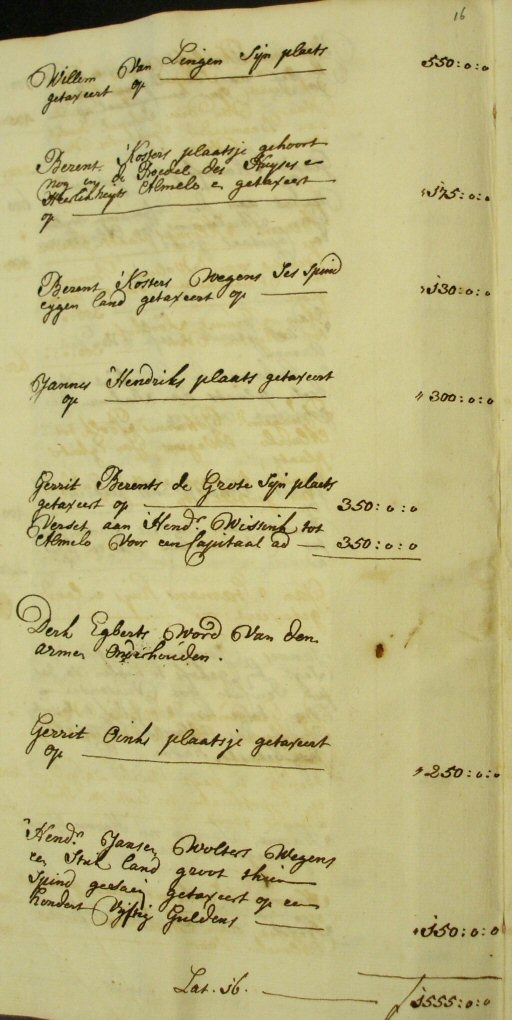 16
Willem Van Lingen Sijn plaets
getaxeert op 550:0:0
Berent Kosters plaatsje gehoort
nog in de Boedel des Huyses en
Heerlickheijts Almelo en getaxeert
op 175:0:0
Berent Kosters Wegens Ses Spind
eygen land getaxeert op 130:0:0
Jannes Hendriks plaats getaxeert
op 300:0:0
Gerrit Berents de Grote Sijn plaets
getaxeert op 350:0:0
Verset aan Hendr. Wissink tot
Almelo Voor een Capitaal ad 350:0:0
Derk Egberts Word Van den
armen Onderhouden.
Gerrit Oinks plaatsje getaxeert
op 250:0:0
Hendr. Jansen Wolters Wegens
een Stuk land groot thien
Spind gesaey getaxeert op een
hondert Vijftig Guldens 150:0:0
Lat. 16. ƒ 1555:0:0